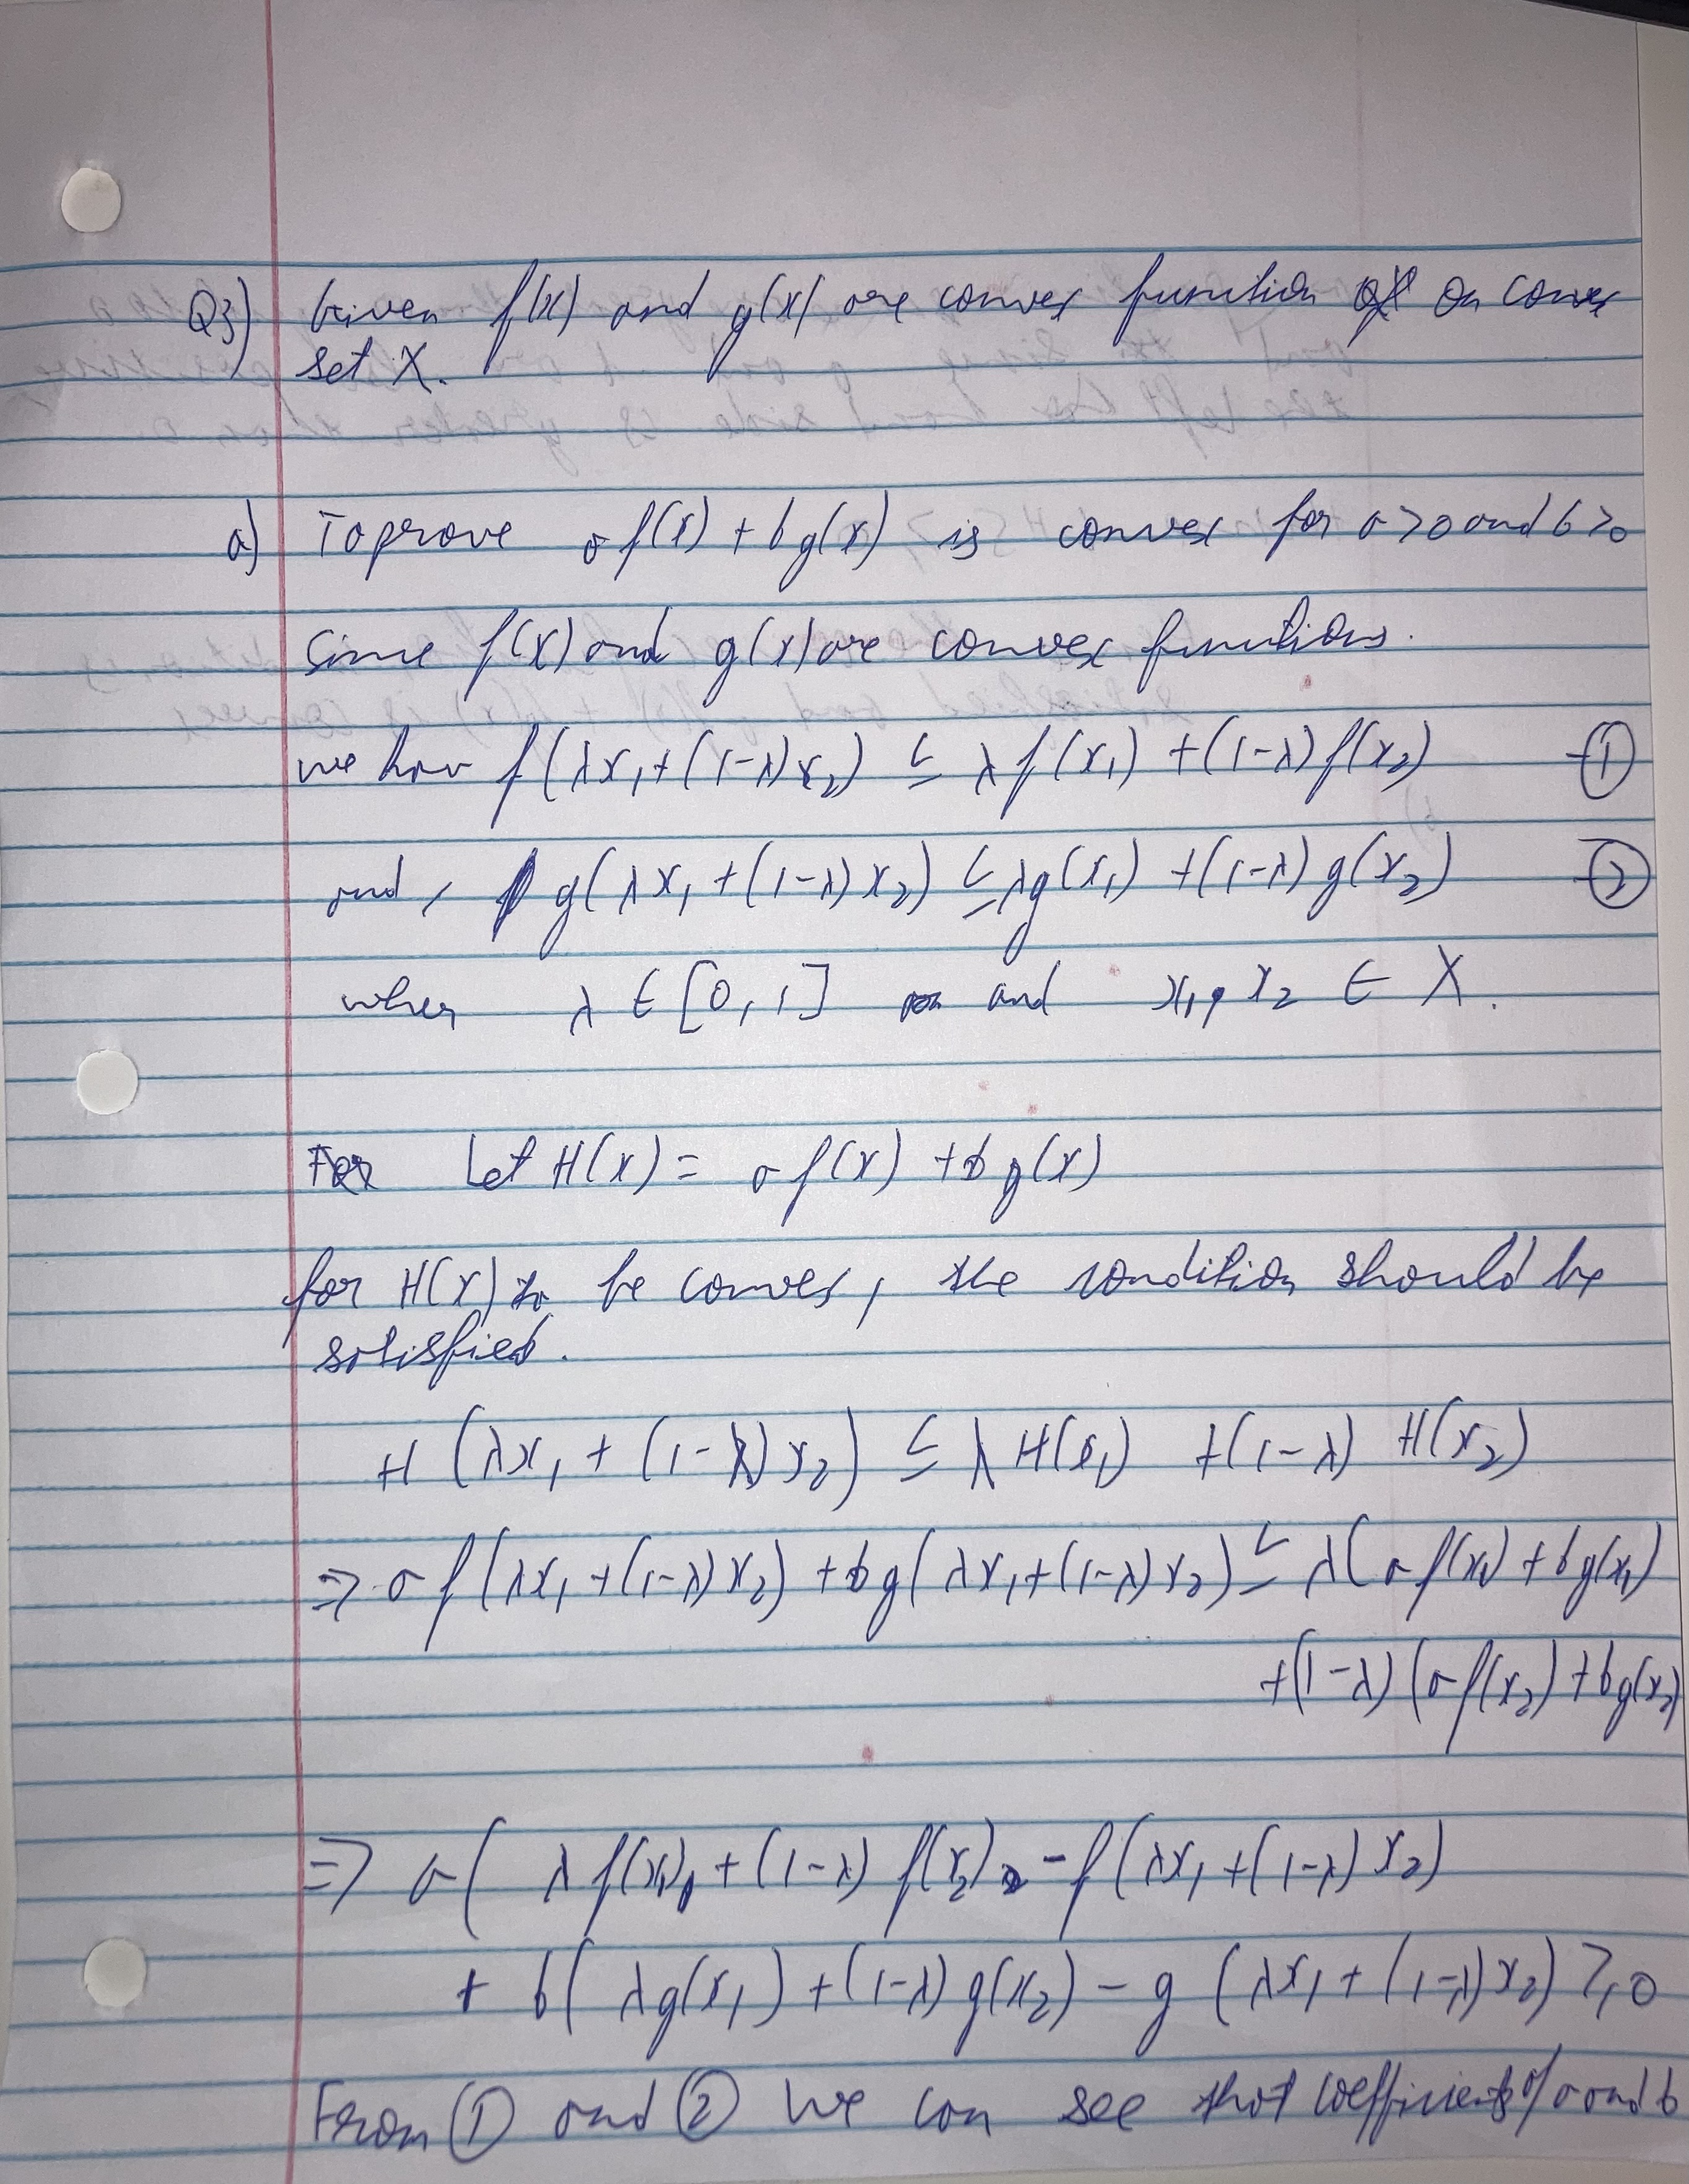 Q3) Given f(x) and g(x) are convex function on convex
set X.
a) To prove a f(x) + b g(x) is convex for a > 0 and b > 0
Since f(x) and g(x) are convex functions.
we have f(λx₁+(1-λ)x₂) ≤ λ f(x₁) + (1-λ) f(x₂) -①
and, g(λx₁ + (1-λ) x₂) ≤ λg(x₁) + (1-λ) g(x₂) -②
when λ ∈ [0,1] and x₁, x₂ ∈ X.
Let H(x) = a f(x) + b g(x)
for H(x) to be convex, the condition should be
satisfied.
H (λx₁ + (1-λ) x₂) ≤ λ H(x₁) + (1-λ) H(x₂)
⇒ a f(λx₁ + (1-λ) x₂) + b g(λx₁+(1-λ)x₂) ≤ λ(a f(x₁) + b g(x₁)
+ (1-λ) (a f(x₂) + b g(x₂)
⇒ a( λ f(x₁) + (1-λ) f(x₂) - f(λx₁ + (1-λ) x₂)
+ b( λ g(x₁) + (1-λ) g(x₂) - g (λx₁ + (1-λ) x₂) ≥ 0
From ① and ② we can see that coefficients of a and b